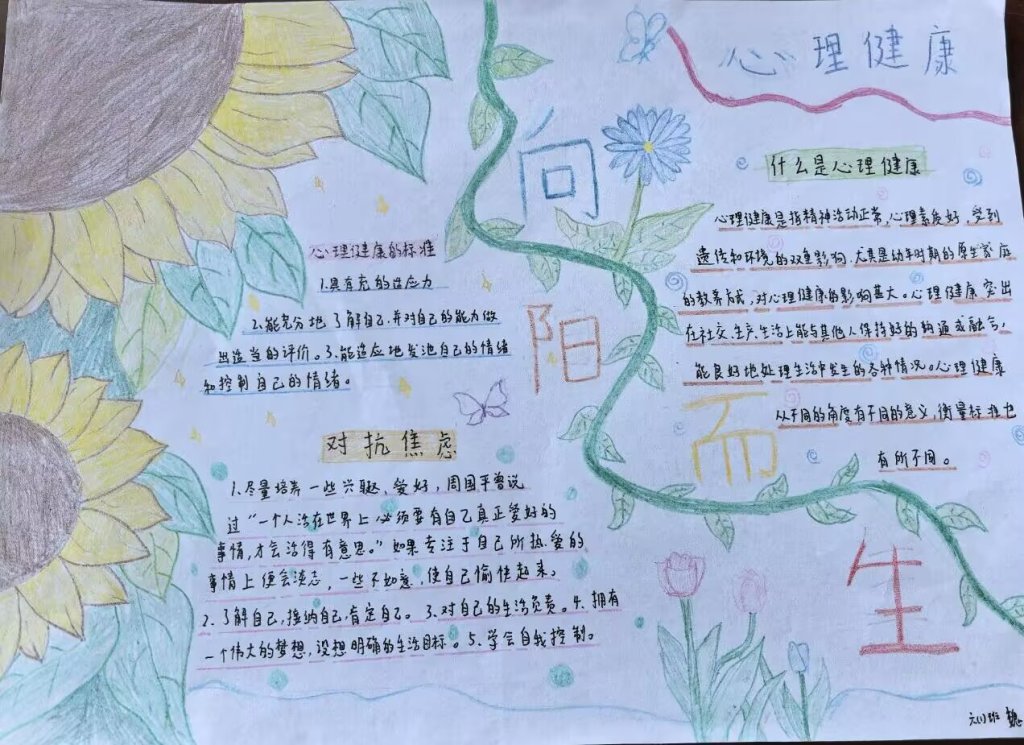 心理健康
向
阳
而
生
什么是心理健康
心理健康是指精神活动正常,心理素质好,受到
遗传和环境的双重影响,尤其是幼年时期的原生家庭
的教养方式,对心理健康的影响甚大。心理健康突出
在社交、生产、生活上能与其他人保持好的沟通或融合,
能良好地处理生活中发生的各种情况。心理健康
从不同的角度有不同的意义,衡量标准也
有所不同。
心理健康的标准
1.具有充的适应力
2.能充分地了解自己,并对自己的能力做
出适当的评价。3.能适应地发泄自己的情绪
和控制自己的情绪。
对抗焦虑
1.尽量培养一些兴趣、爱好,周国平曾说
过“一个人活在世界上必须要有自己真正爱好的
事情,才会活得有意思。”如果专注于自己所热爱的
事情上便会淡忘,一些不如意,使自己愉快起来。
2.了解自己,接纳自己,肯定自己。3.对自己的生活负责。4.拥有
一个伟大的梦想,设想明确的生活目标。5.学会自我控制。